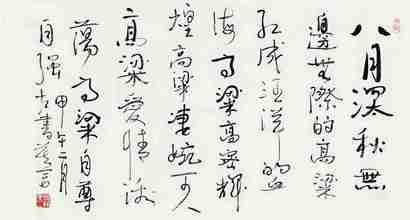 八月深秋無
邊無際的高粱
红成汪洋的血
海高粱高密輝
煌高粱凄婉可人
高粱愛情激
蕩高粱自尊
甲午二月
自强左書莫言